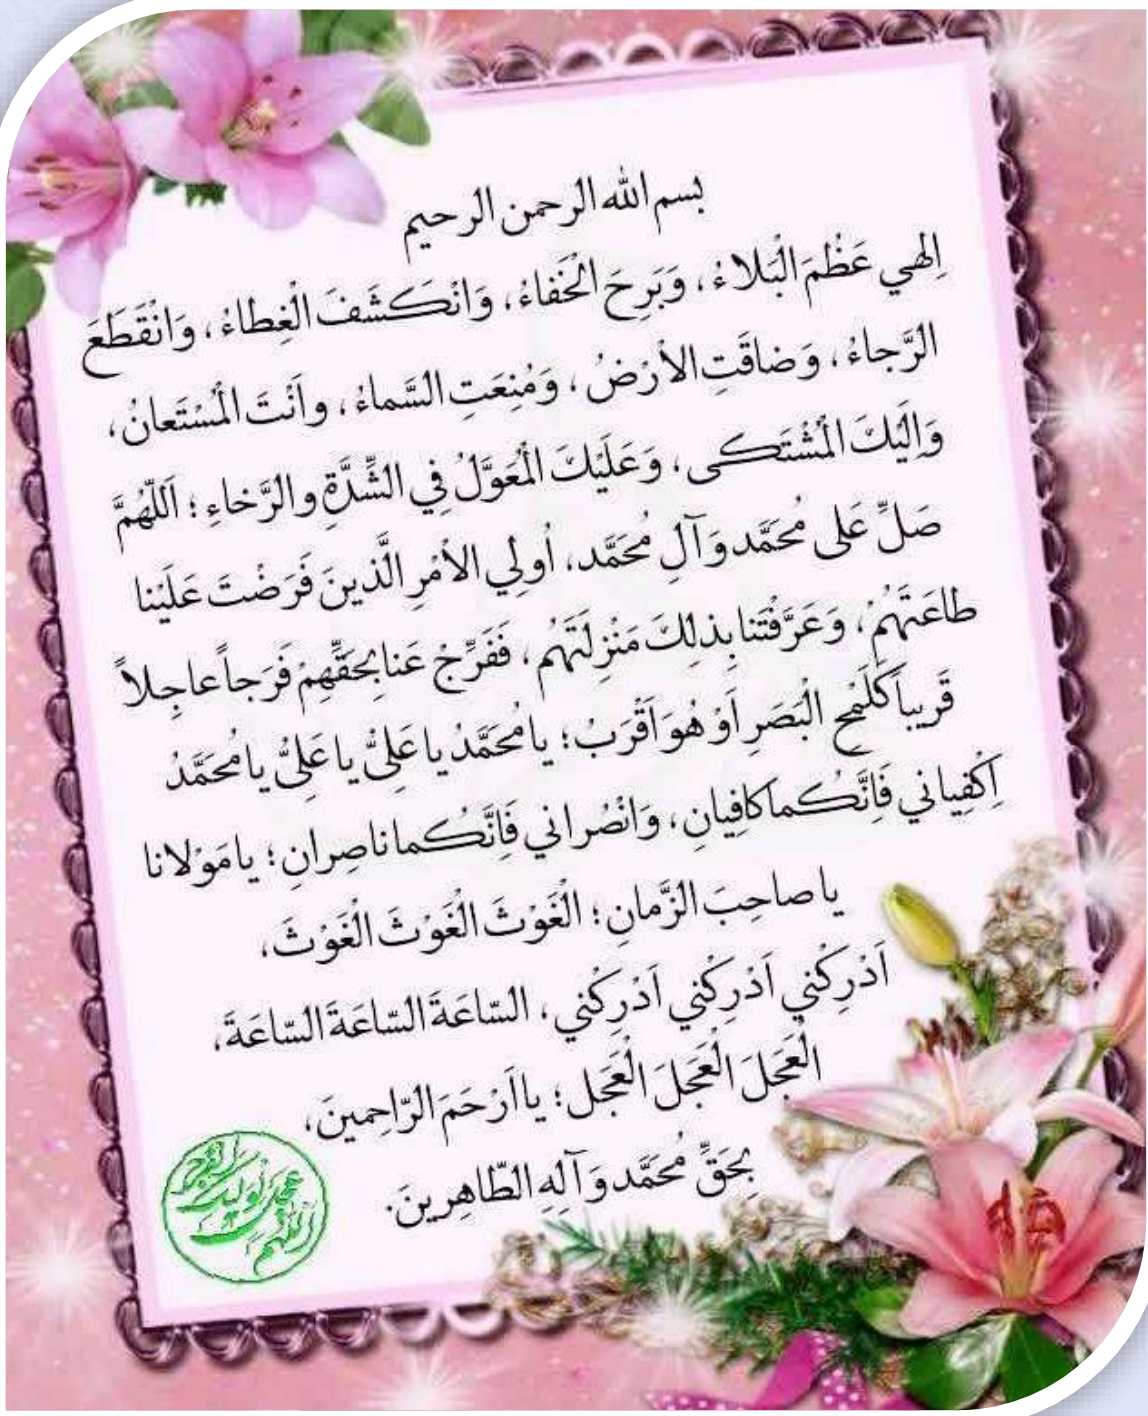 بسم الله الرحمن الرحيم
اِلهي عَظُمَ الْبَلاءُ، وَبَرِحَ الْخَفاءُ، وَانْكَشَفَ الْغِطاءُ، وَانْقَطَعَ
الرَّجاءُ، وَضاقَتِ الاْرْضُ، وَمُنِعَتِ السَّماءُ، واَنْتَ الْمُسْتَعانُ،
وَاِلَيْكَ الْمُشْتَكى، وَعَلَيْكَ الْمُعَوَّلُ فِي الشِّدَّةِ والرَّخاءِ؛ اَللّهُمَّ
صَلِّ عَلى مُحَمَّد وَآلِ مُحَمَّد، اُولِي الاْمْرِ الَّذينَ فَرَضْتَ عَلَيْنا
طاعَتَهُمْ، وَعَرَّفْتَنا بِذلِكَ مَنْزِلَتَهُم، فَفَرِّجْ عَنا بِحَقِّهِمْ فَرَجاً عاجِلاً
قَريباً كَلَمْحِ الْبَصَرِ اَوْ هُوَ اَقْرَبُ؛ يا مُحَمَّدُ يا عَلِيُّ يا عَلِيُّ يا مُحَمَّدُ
اِكْفِياني فَاِنَّكُما كافِيانِ، وَانْصُراني فَاِنَّكُما ناصِرانِ؛ يا مَوْلانا
يا صاحِبَ الزَّمانِ؛ الْغَوْثَ الْغَوْثَ الْغَوْثَ،
اَدْرِكْني اَدْرِكْني اَدْرِكْني، السّاعَةَ السّاعَةَ السّاعَةَ،
الْعَجَلَ الْعَجَلَ الْعَجَل؛ يا اَرْحَمَ الرّاحِمينَ،
بِحَقِّ مُحَمَّد وَآلِهِ الطّاهِرينَ.
اللهم عجل لوليك الفرج